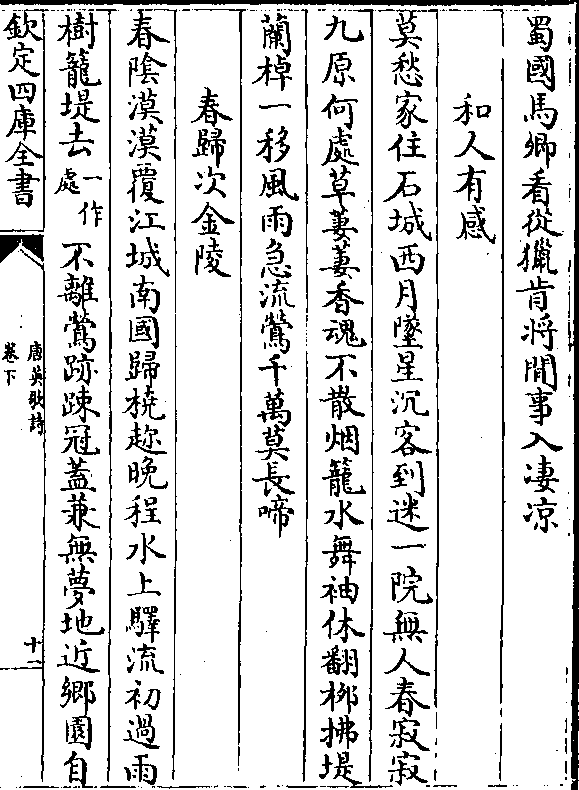 蜀國馬卿看從獵肯將閒事入凄凉
和人有感
莫愁家住石城西月墜星沉客到迷一院無人春寂寂
九原何處草萋萋香魂不散烟籠水舞袖休翻栁拂堤
蘭棹一移風雨急流鶯千萬莫長啼
春歸次金陵
春陰漠漠覆江城南國歸橈趂晚程水上驛流初過雨
樹籠堤去一作處不離鶯跡踈冠蓋兼無夢地近鄉園自
欽定四庫全書
唐英歌詩
卷下
十二